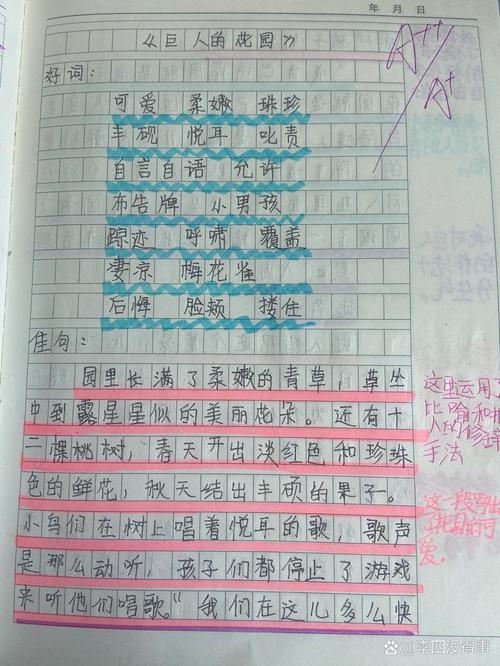 年 月 日
《巨人的花园》
A++
A+
好词:
可爱 柔嫩 珠珍
丰砚 悦耳 叱责
自言自语 允许
布告牌 小男孩
踪迹 呼啸 覆盖
凄凉 梅花雀
后悔 脸颊 搂住
佳句:
园里长满了柔嫩的青草,草丛
中到露星星似的美丽花朵。还有十
二棵桃树,春天开出淡红色和珍珠
色的鲜花,秋天结出丰硕的果子。
小鸟们在树上唱着悦耳的歌,歌声
是那么动听,孩子们都停止了游戏
来听他们唱歌。“我们在这儿多么快
这里运用了
比喻和
人的修辞
手法
这一段写出
可
爱。
百家号/李四没得事